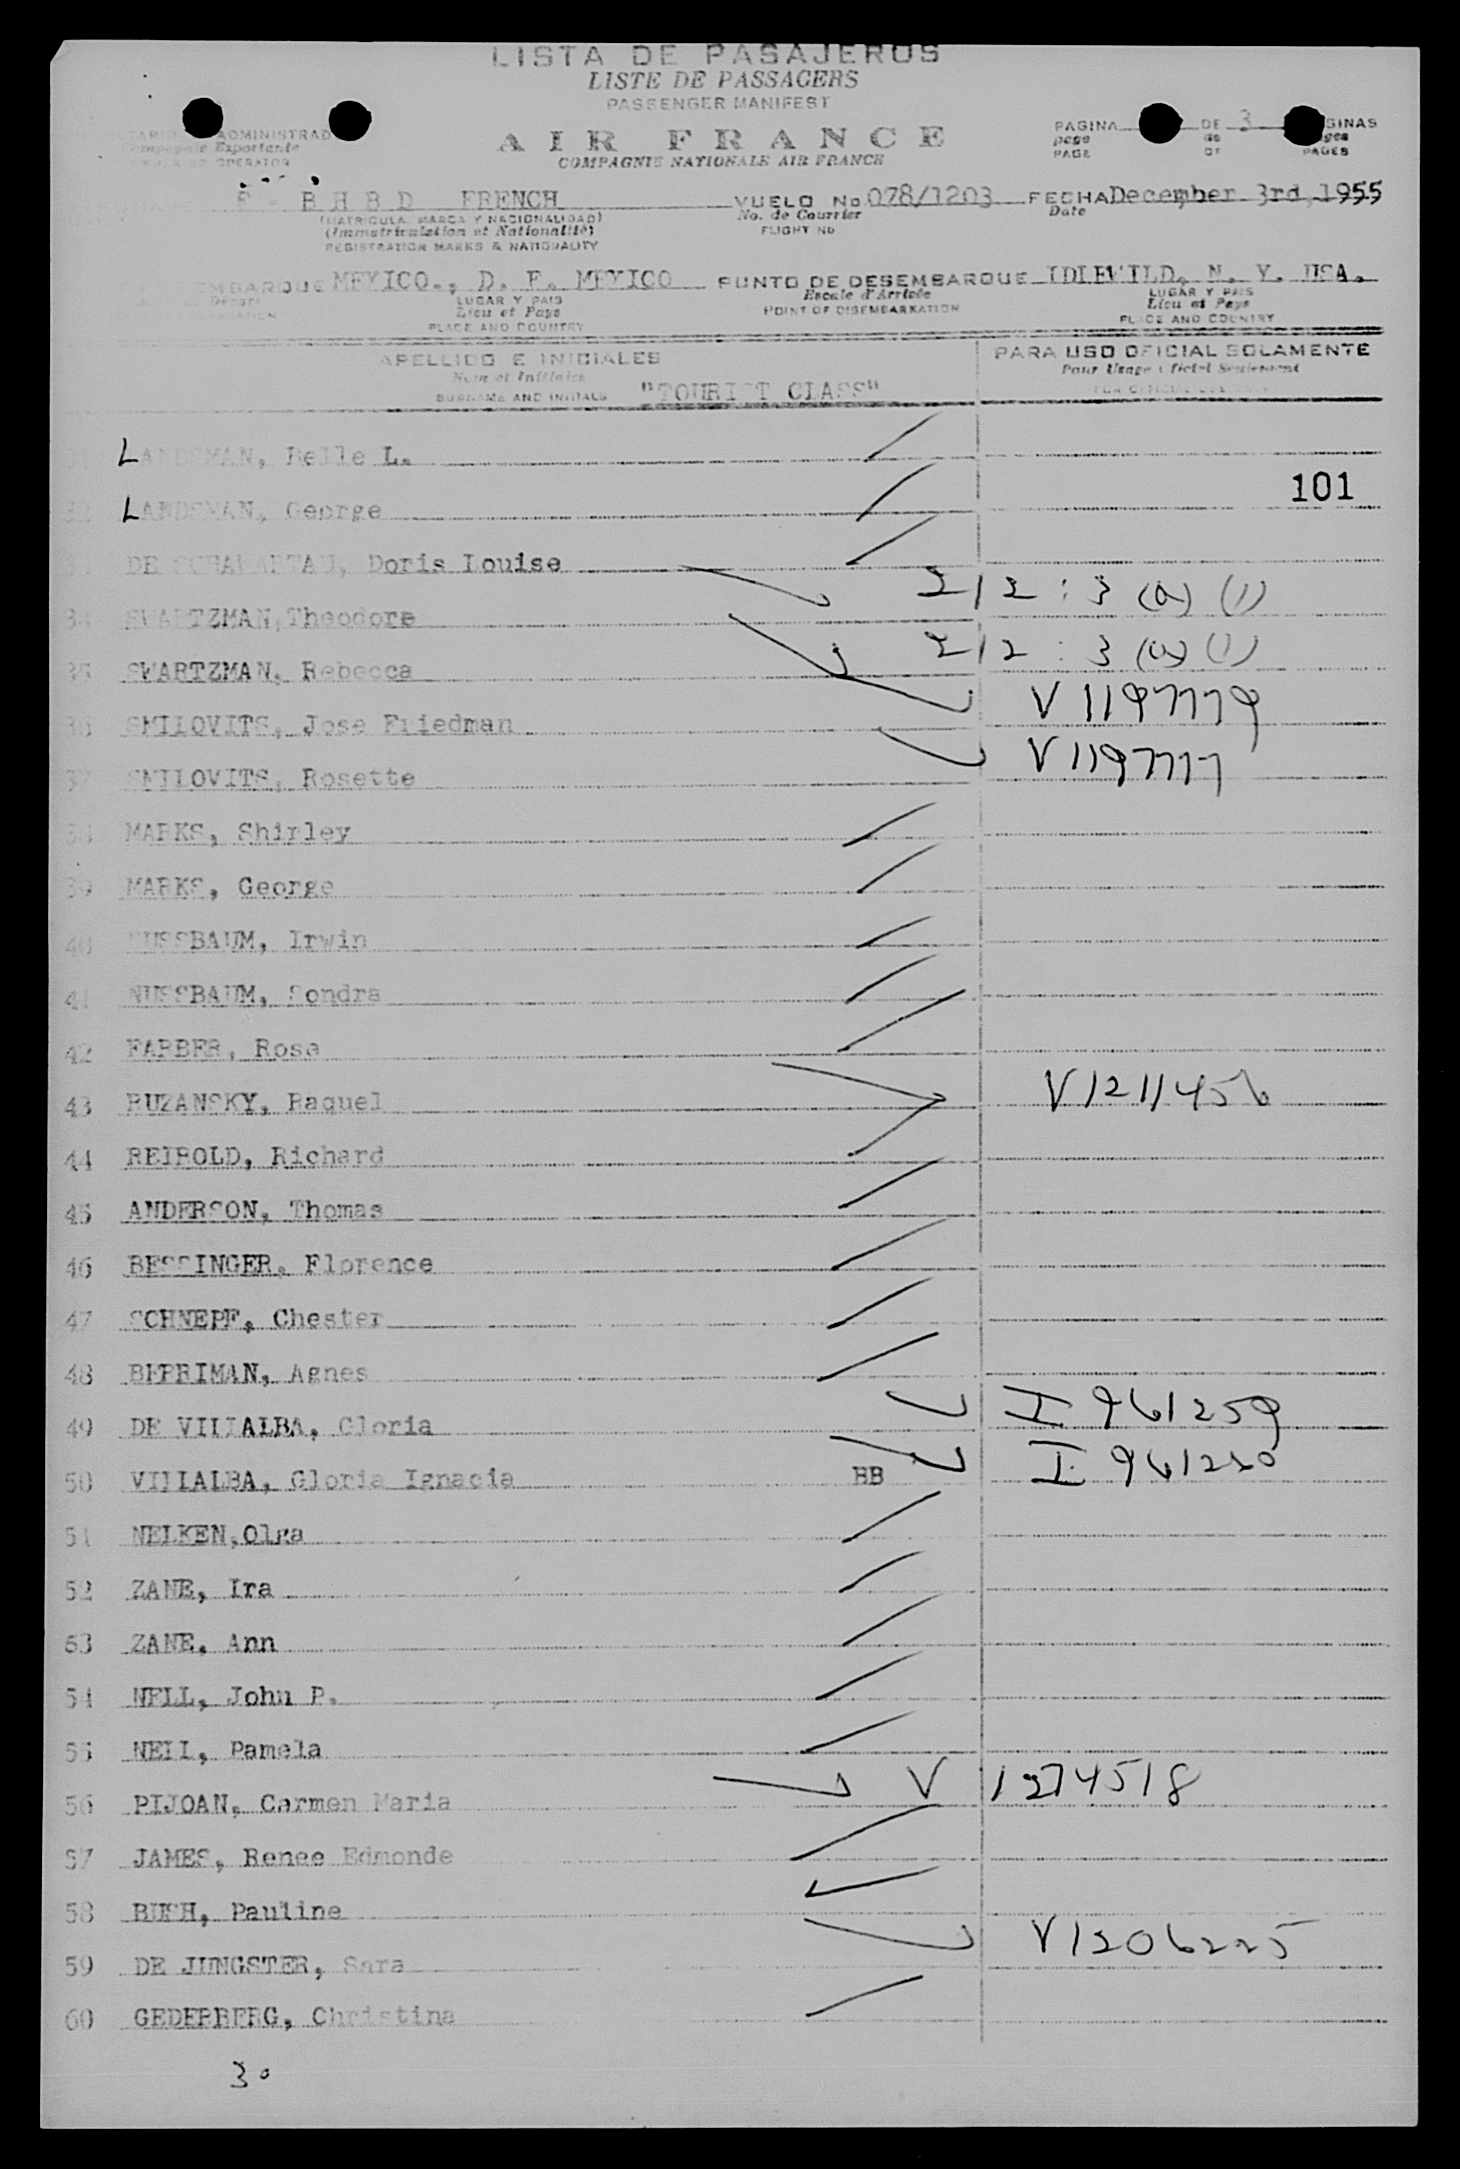 LISTA DE PASAJEROS
LISTE DE PASSAGERS
PASSENGER MANIFEST
AIR FRANCE
COMPAGNIE NATIONALE AIR FRANCE
PAGINA DE 3 PAGINAS
page de
PAGE OF PAGES
ADMINISTRAD
Compagnie Exportante
OPERATOR
F - B H B D FRENCH VUELO No. 078/1203 FECHA December 3rd, 1955
(MATRICULA, MARCA Y NACIONALIDAD) No. de Courrier Date
(Immatriculation et Nationalité) FLIGHT No
REGISTRATION MARKS & NATIONALITY
EMBARQUE MEXICO., D. F. MEXICO PUNTO DE DESEMBARQUE IDLEWILD, N. Y. USA.
LUGAR Y PAIS Escale d'Arrivée LUGAR Y PAIS
Lieu et Pays POINT OF DISEMBARKATION Lieu et Pays
PLACE AND COUNTRY PLACE AND COUNTRY
APELLIDO E INICIALES PARA USO OFICIAL SOLAMENTE
Nom et Initiales Pour Usage Officiel Seulement
SURNAME AND INITIALS "TOURIST CLASS"
LANDSMAN, Belle L.
101
32 LANDSMAN, George
DE Doris Louise
34 SWARTZMAN, Theodore 212 : 3 (a) (1)
35 SWARTZMAN, Rebecca 212 : 3 (a) (1)
36 SMILOVITS, Jose Friedman V 1197779
37 SMILOVITS, Rosette V 1197777
38 MARKS, Shirley
39 MARKS, George
40 NUSSBAUM, Irwin
41 NUSSBAUM, Sondra
42 FARBER, Rose
43 RUZANSKY, Raquel V 1211456
44 REIBOLD, Richard
45 ANDERSON, Thomas
46 BESSINGER, Florence
47 SCHNEPF, Chester
48 BERRIMAN, Agnes
49 DE VILLALBA, Gloria I 961259
50 VILLALBA, Gloria Ignacia BB I 961260
51 NELKEN, Olga
52 ZANE, Ira
53 ZANE, Ann
54 NELL, John P.
55 NELL, Pamela
56 PIJOAN, Carmen Maria V 1274518
57 JAMES, Renee Edmonde
58 BUSH, Pauline
59 DE JUNGSTER, Sara V 1206225
60 GEDERBERG, Christina
30